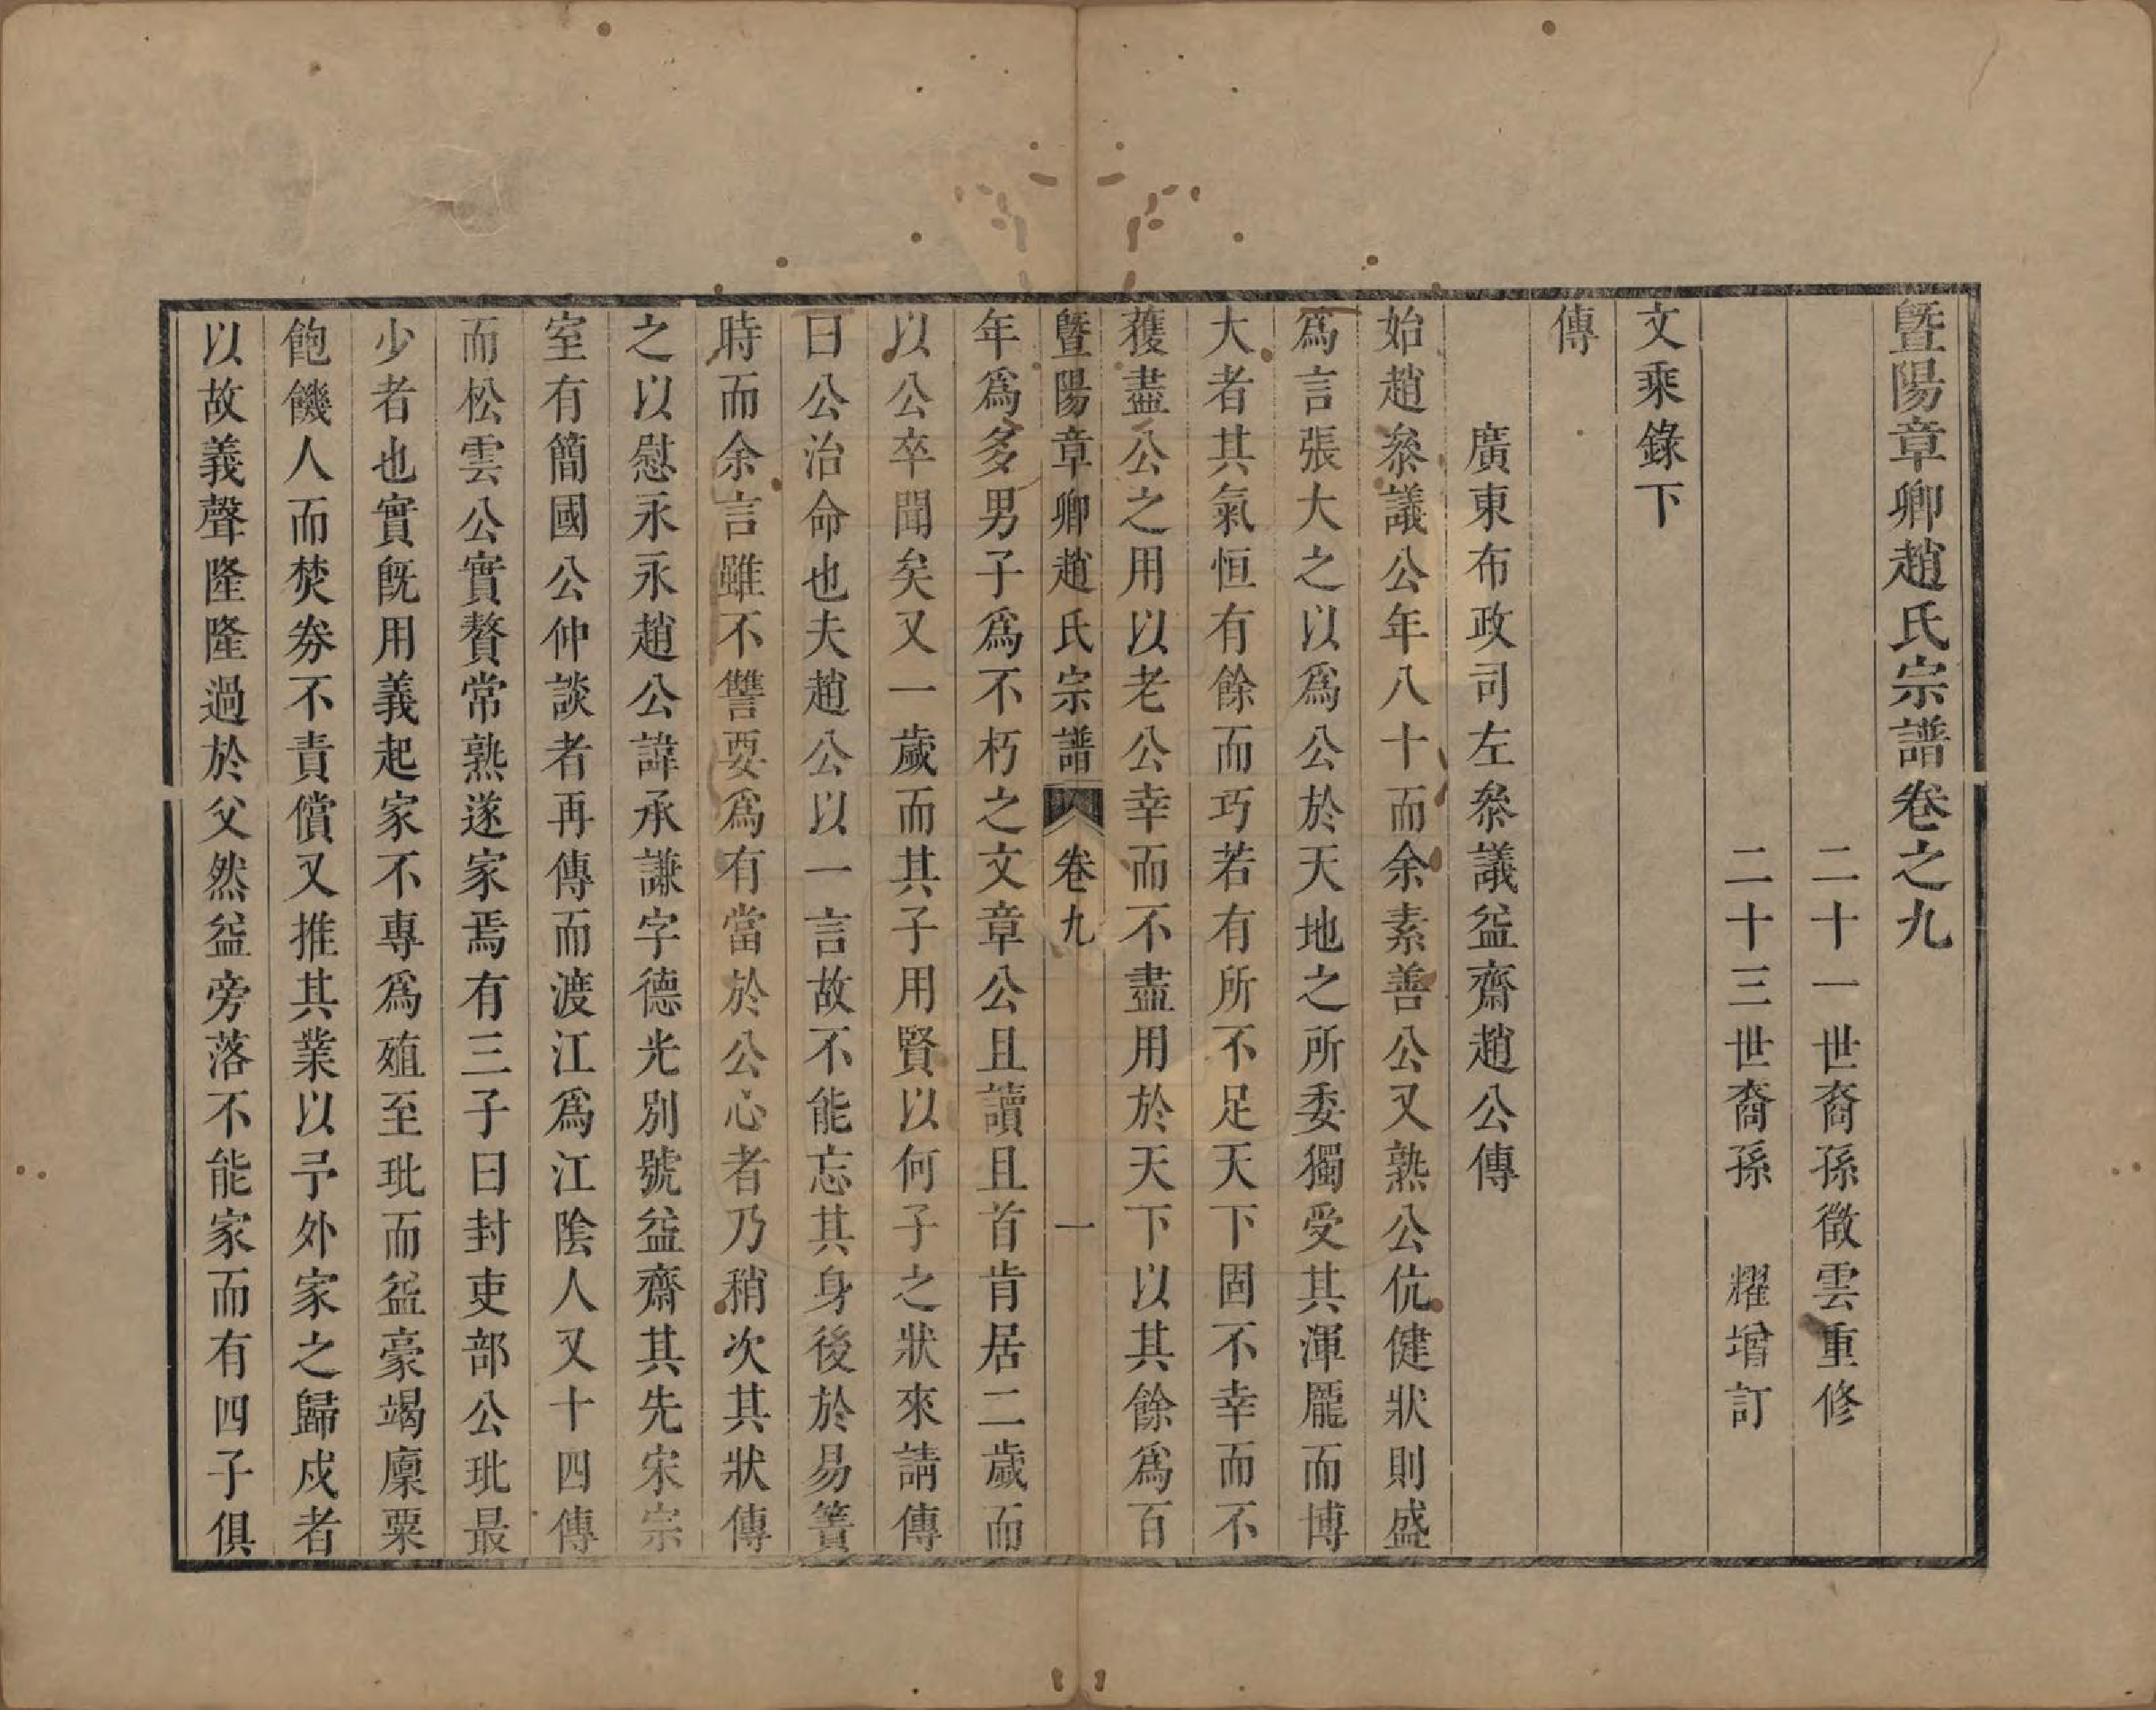 暨陽章卿趙氏宗譜卷之九
二十一世裔孫徵雲重修
二十三世裔孫　耀增訂
文乘錄下
傳
廣東布政司左叅議益齋趙公傳
始趙叅議公年八十而余素善公又熟公伉健狀則盛
爲言張大之以爲公於天地之所委獨受其渾龎而博
大者其氣恒有餘而巧若有所不足天下固不幸而不
獲盡公之用以老公幸而不盡用於天下以其餘爲百
暨陽章卿趙氏宗譜　卷九　一
年爲多男子爲不朽之文章公且讀且首肯居二歲而
以公卒聞矣又一歲而其子用賢以何子之狀來請傳
曰公治命也夫趙公以一言故不能忘其身後於易簀
時而余言雖不讐要爲有當於公心者乃稍次其狀傳
之以慰永永趙公諱承謙字德光别號益齋其先宋宗
室有簡國公仲談者再傳而渡江爲江陰人又十四傳
而松雲公實贅常熟遂家焉有三子曰封吏部公玭最
少者也實旣用義起家不專爲殖至玭而益豪竭廩粟
飽饑人而焚劵不責償又推其業以予外家之歸戍者
以故義聲隆隆過於父然益旁落不能家而有四子俱